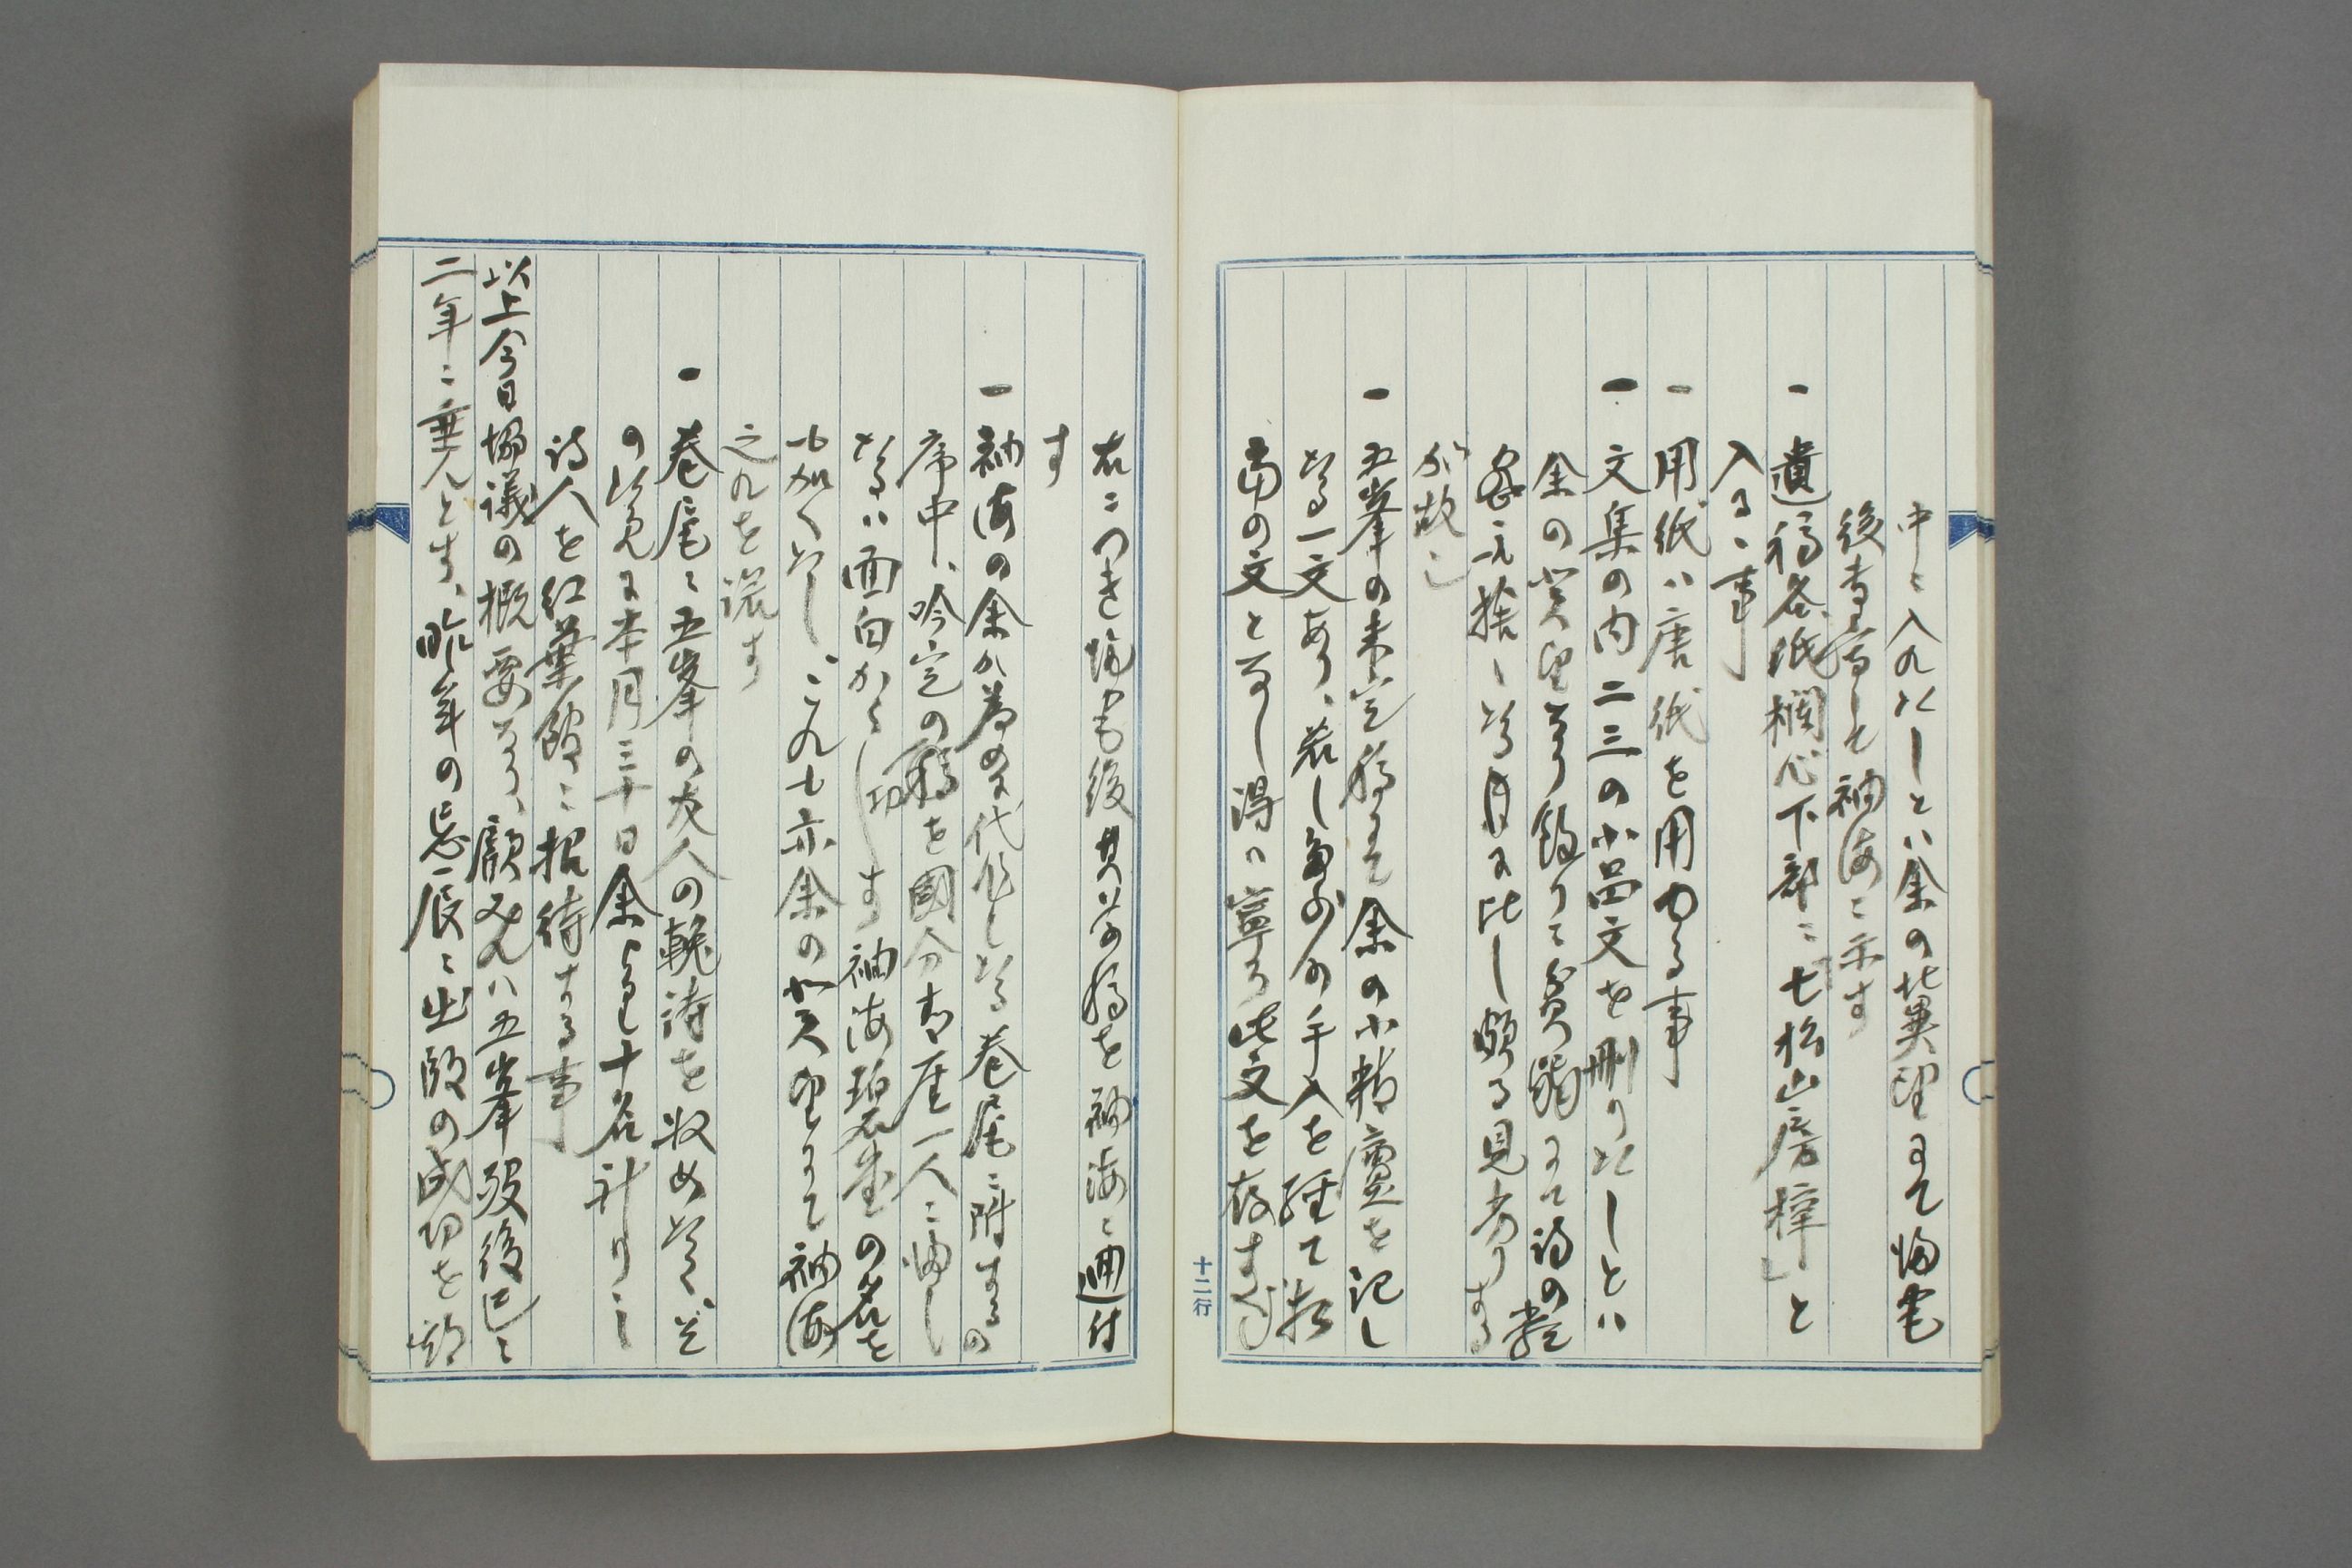 中ニ入れたしとハ余の冀望にて帰宅
後書き寄して袖海ニ示す
一 遺稿各紙欄心下部ニ「七松山房梓」と
入るゝ事
一 用紙ハ唐紙を用ゆる事
一 文集の内二三の小品文を削りたしとハ
余の冀望なり
が故也
一 五峯の未定稿にて余の小精廬を記し
たる一文あり、若し多少の手入を経て
の文となし得ハ寧ろ此文を存すべし
右ニつき帰宅後其草稿を袖海ニ廻付
す
一 袖海の余か為めに代作したる巻尾ニ附するの
序中、吟定の稿を國分青厓一人ニ帰し
たるハ面白からす 袖海碧堂の名を
も加へたし、これも亦余の冀望にて袖海
之れを諾す
一 巻尾ニ五峯の友人の輓詩を収めたく、是
の為に本月三十日余より十名計りの
詩人を紅葉館ニ招待する事
以上今日協議の概要なり、顧みれハ五峯歿後已ニ
二年ニ垂んとす、昨年の忌辰ニ出版の成功を